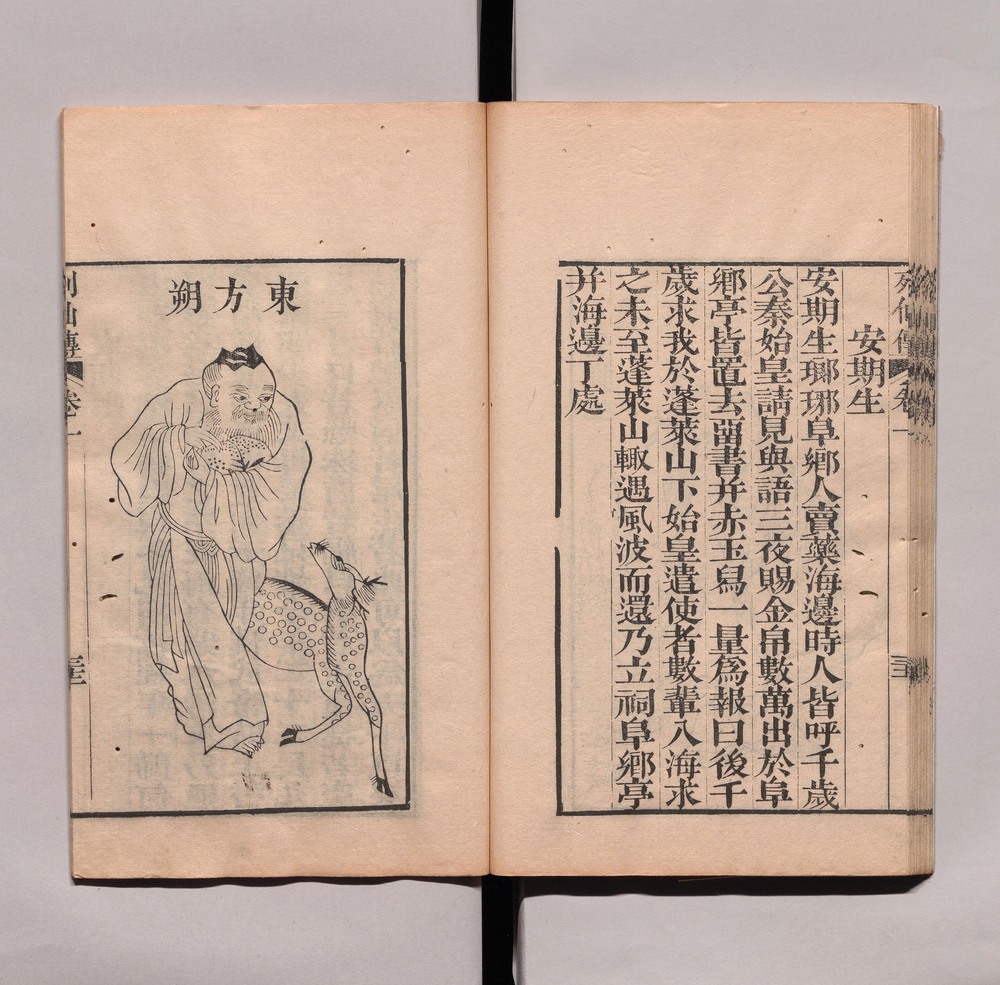 列仙傳 卷一
安期生
安期生瑯琊阜鄉人賣藥海邊時人皆呼千歲
公秦始皇請見與語三夜賜金帛數萬出於阜
鄉亭皆置去畱書并赤玉舄一量爲報曰後千
歲求我於蓬萊山下始皇遣使者數輩入海求
之未至蓬萊山輙遇風波而還乃立祠阜鄉亭
并海邊丁處
東方朔
列仙傳 卷一